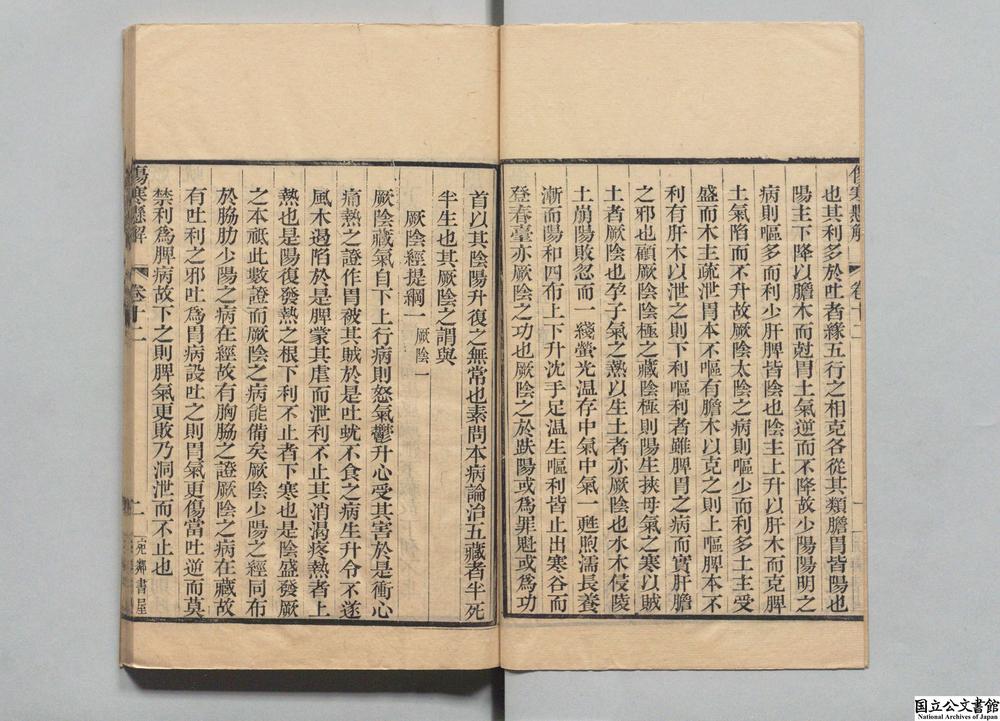 也其利多於吐者緣五行之相克各從其類膽胃皆陽也
陽主下降以膽木而尅胃土氣逆而不降故少陽陽明之
病則嘔多而利少肝脾皆陰也陰主上升以肝木而克脾
土氣陷而不升故厥陰太陰之病則嘔少而利多土主受
盛而木主疏泄胃本不嘔有膽木以克之則上嘔脾本不
利有肝木以泄之則下利嘔利者雖脾胃之病而實肝膽
之邪也顧厥陰陰極之藏陰極則陽生挾母氣之寒以賊
土者厥陰也孕子氣之熱以生土者亦厥陰也水木侵陵
土崩陽敗忽而一綫螢光温存中氣中氣一甦煦濡長養
漸而陽和四布上下升沈手足温生嘔利皆止出寒谷而
登春臺亦厥陰之功也厥陰之於趺陽或爲罪魁或爲功
傷寒懸解
卷十二
一
首以其陰陽升復之無常也素問本病論治五藏者半死
半生也其厥陰之謂與
厥陰經提綱一 厥陰一
厥陰藏氣自下上行病則怒氣鬱升心受其害於是衝心
痛熱之證作胃被其賊於是吐蚘不食之病生升令不遂
風木遏陷於是脾蒙其虐而泄利不止其消渴疼熱者上
熱也是陽復發熱之根下利不止者下寒也是陰盛發厥
之本祇此數證而厥陰之病能備矣厥陰少陽之經同布
於脇肋少陽之病在經故有胸脇之證厥陰之病在藏故
有吐利之邪吐爲胃病設吐之則胃氣更傷當吐逆而莫
禁利爲脾病故下之則脾氣更敗乃洞泄而不止也
傷寒懸解
卷十二
二
宛鄰書屋
国立公文書館
National Archives of Japan